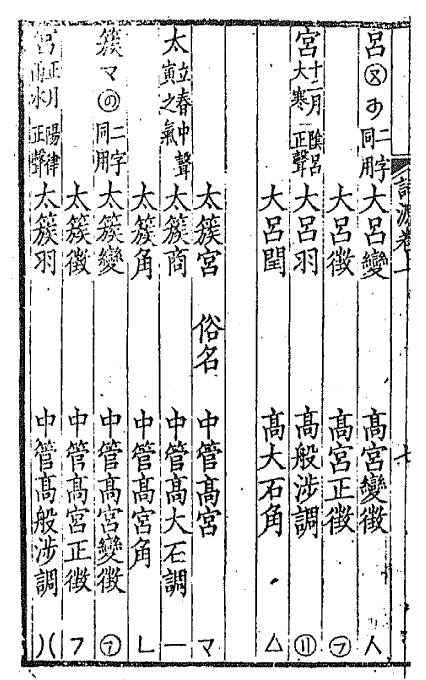 詞源卷 七
呂 二字同用 大呂變 高宮變徵 人
大呂徵 高宮正徵 ㋐
宮 十二月大寒 陰呂正聲 大呂羽 高般涉調
大呂閏 高大石角 △
太簇宮 俗名 中管高宮 マ
太 立春中聲寅之氣 太簇商 中管高大石調 一
太簇角 中管高宮角 ㄴ
簇 マ 二字同用 太簇變 中管高宮變徵 ㋐
太簇徵 中管高宮正徵 フ
宮 正月雨水 陽律正聲 太簇羽 中管高般涉調 )(